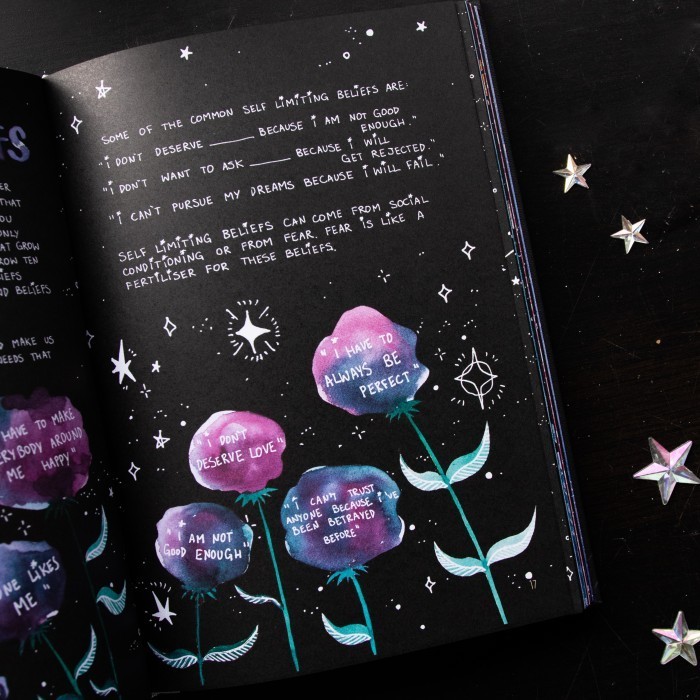 FS
ER
THAT
YOU
ONLY
AT GROW
ROW TEN
IEFS
ND BELIEFS
D MAKE US
NEEDS THAT
HAVE TO MAKE
ERYBODY AROUND
ME HAPPY"
ONE LIKES
ME"
SOME OF THE COMMON SELF LIMITING BELIEFS ARE:
"I DON'T DESERVE ______ BECAUSE I AM NOT GOOD
ENOUGH."
"I DON'T WANT TO ASK ______ BECAUSE I WILL
GET REJECTED."
"I CAN'T PURSUE MY DREAMS BECAUSE I WILL FAIL."
SELF LIMITING BELIEFS CAN COME FROM SOCIAL
CONDITIONING OR FROM FEAR. FEAR IS LIKE A
FERTILISER FOR THESE BELIEFS.
"I HAVE TO
ALWAYS BE
PERFECT"
"I DON'T
DESERVE LOVE"
"I CAN'T TRUST
ANYONE BECAUSE I'VE
BEEN BETRAYED
BEFORE"
"I AM NOT
GOOD ENOUGH"